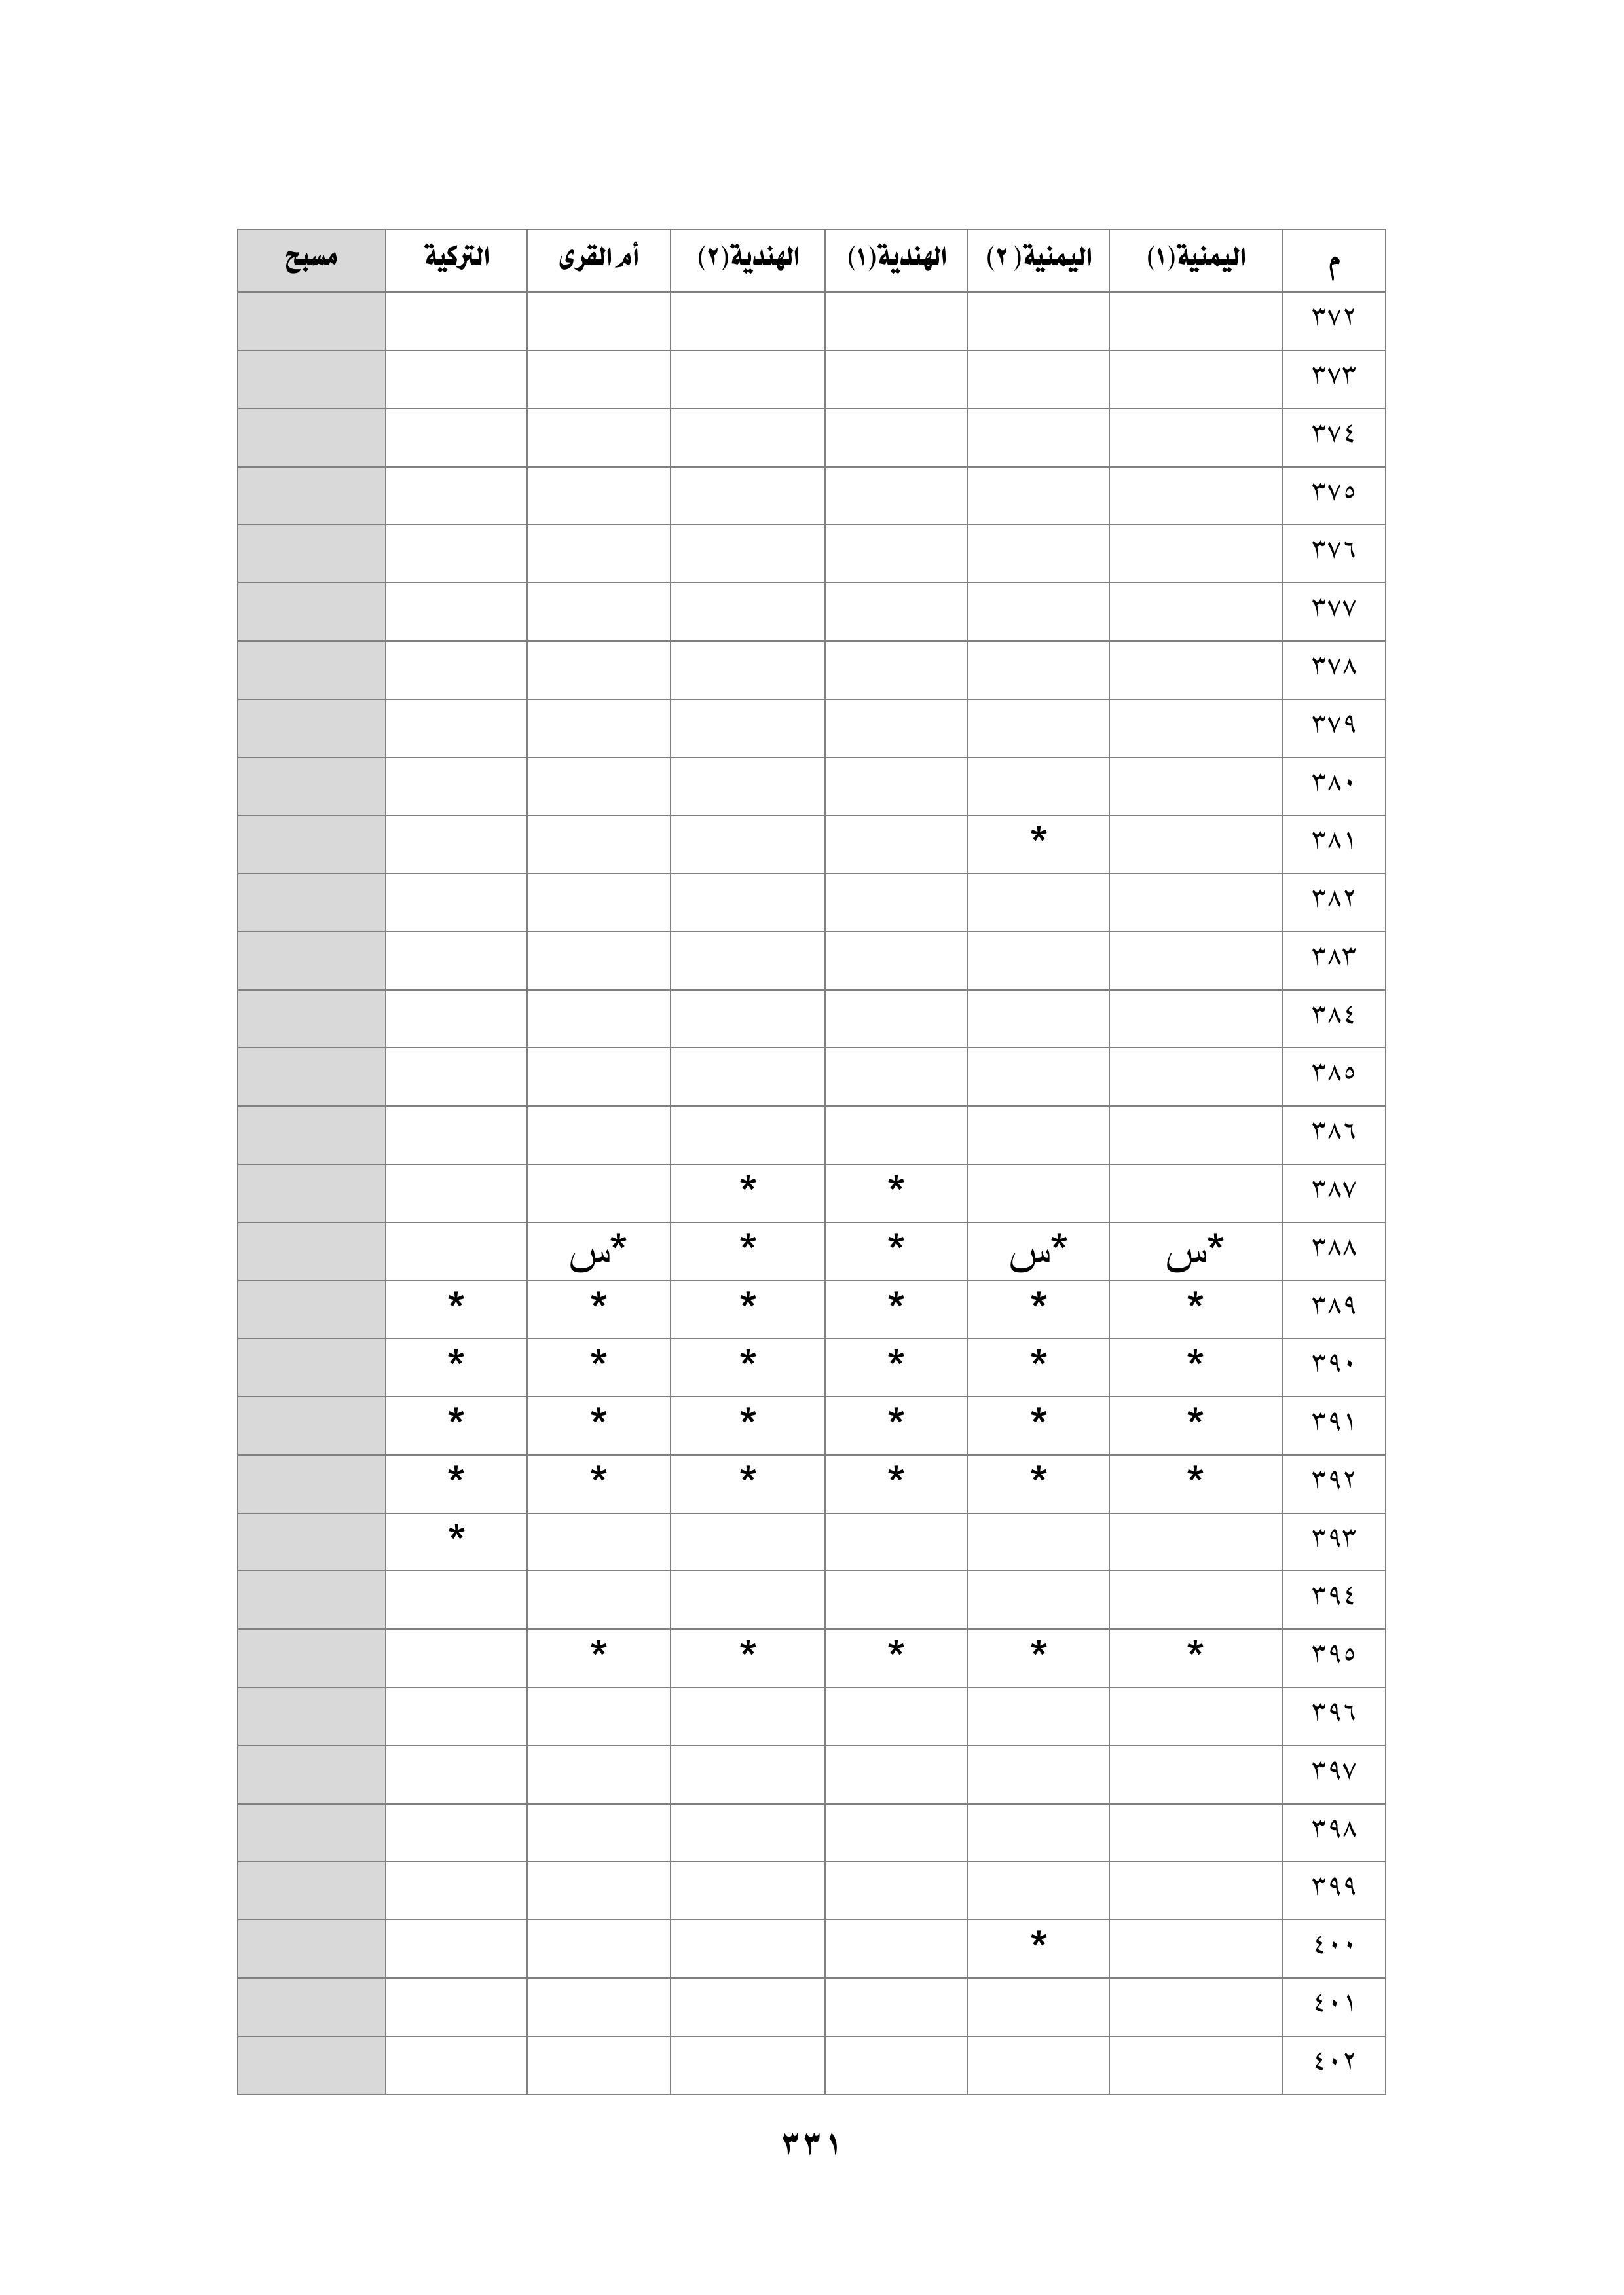 م اليمنية(١) اليمنية( ٢) الهندية(١) الهندية(٢) أم القرى التركية مسبح
٣٧٢
٣٧٣
٣٧٤
٣٧٥
٣٧٦
٣٧٧
٣٧٨
٣٧٩
٣٨٠
٣٨١ *
٣٨٢
٣٨٣
٣٨٤
٣٨٥
٣٨٦
٣٨٧ * *
٣٨٨ *س *س * * *س
٣٨٩ * * * * * *
٣٩٠ * * * * * *
٣٩١ * * * * * *
٣٩٢ * * * * * *
٣٩٣ *
٣٩٤
٣٩٥ * * * * *
٣٩٦
٣٩٧
٣٩٨
٣٩٩
٤٠٠ *
٤٠١
٤٠٢
٣٣١